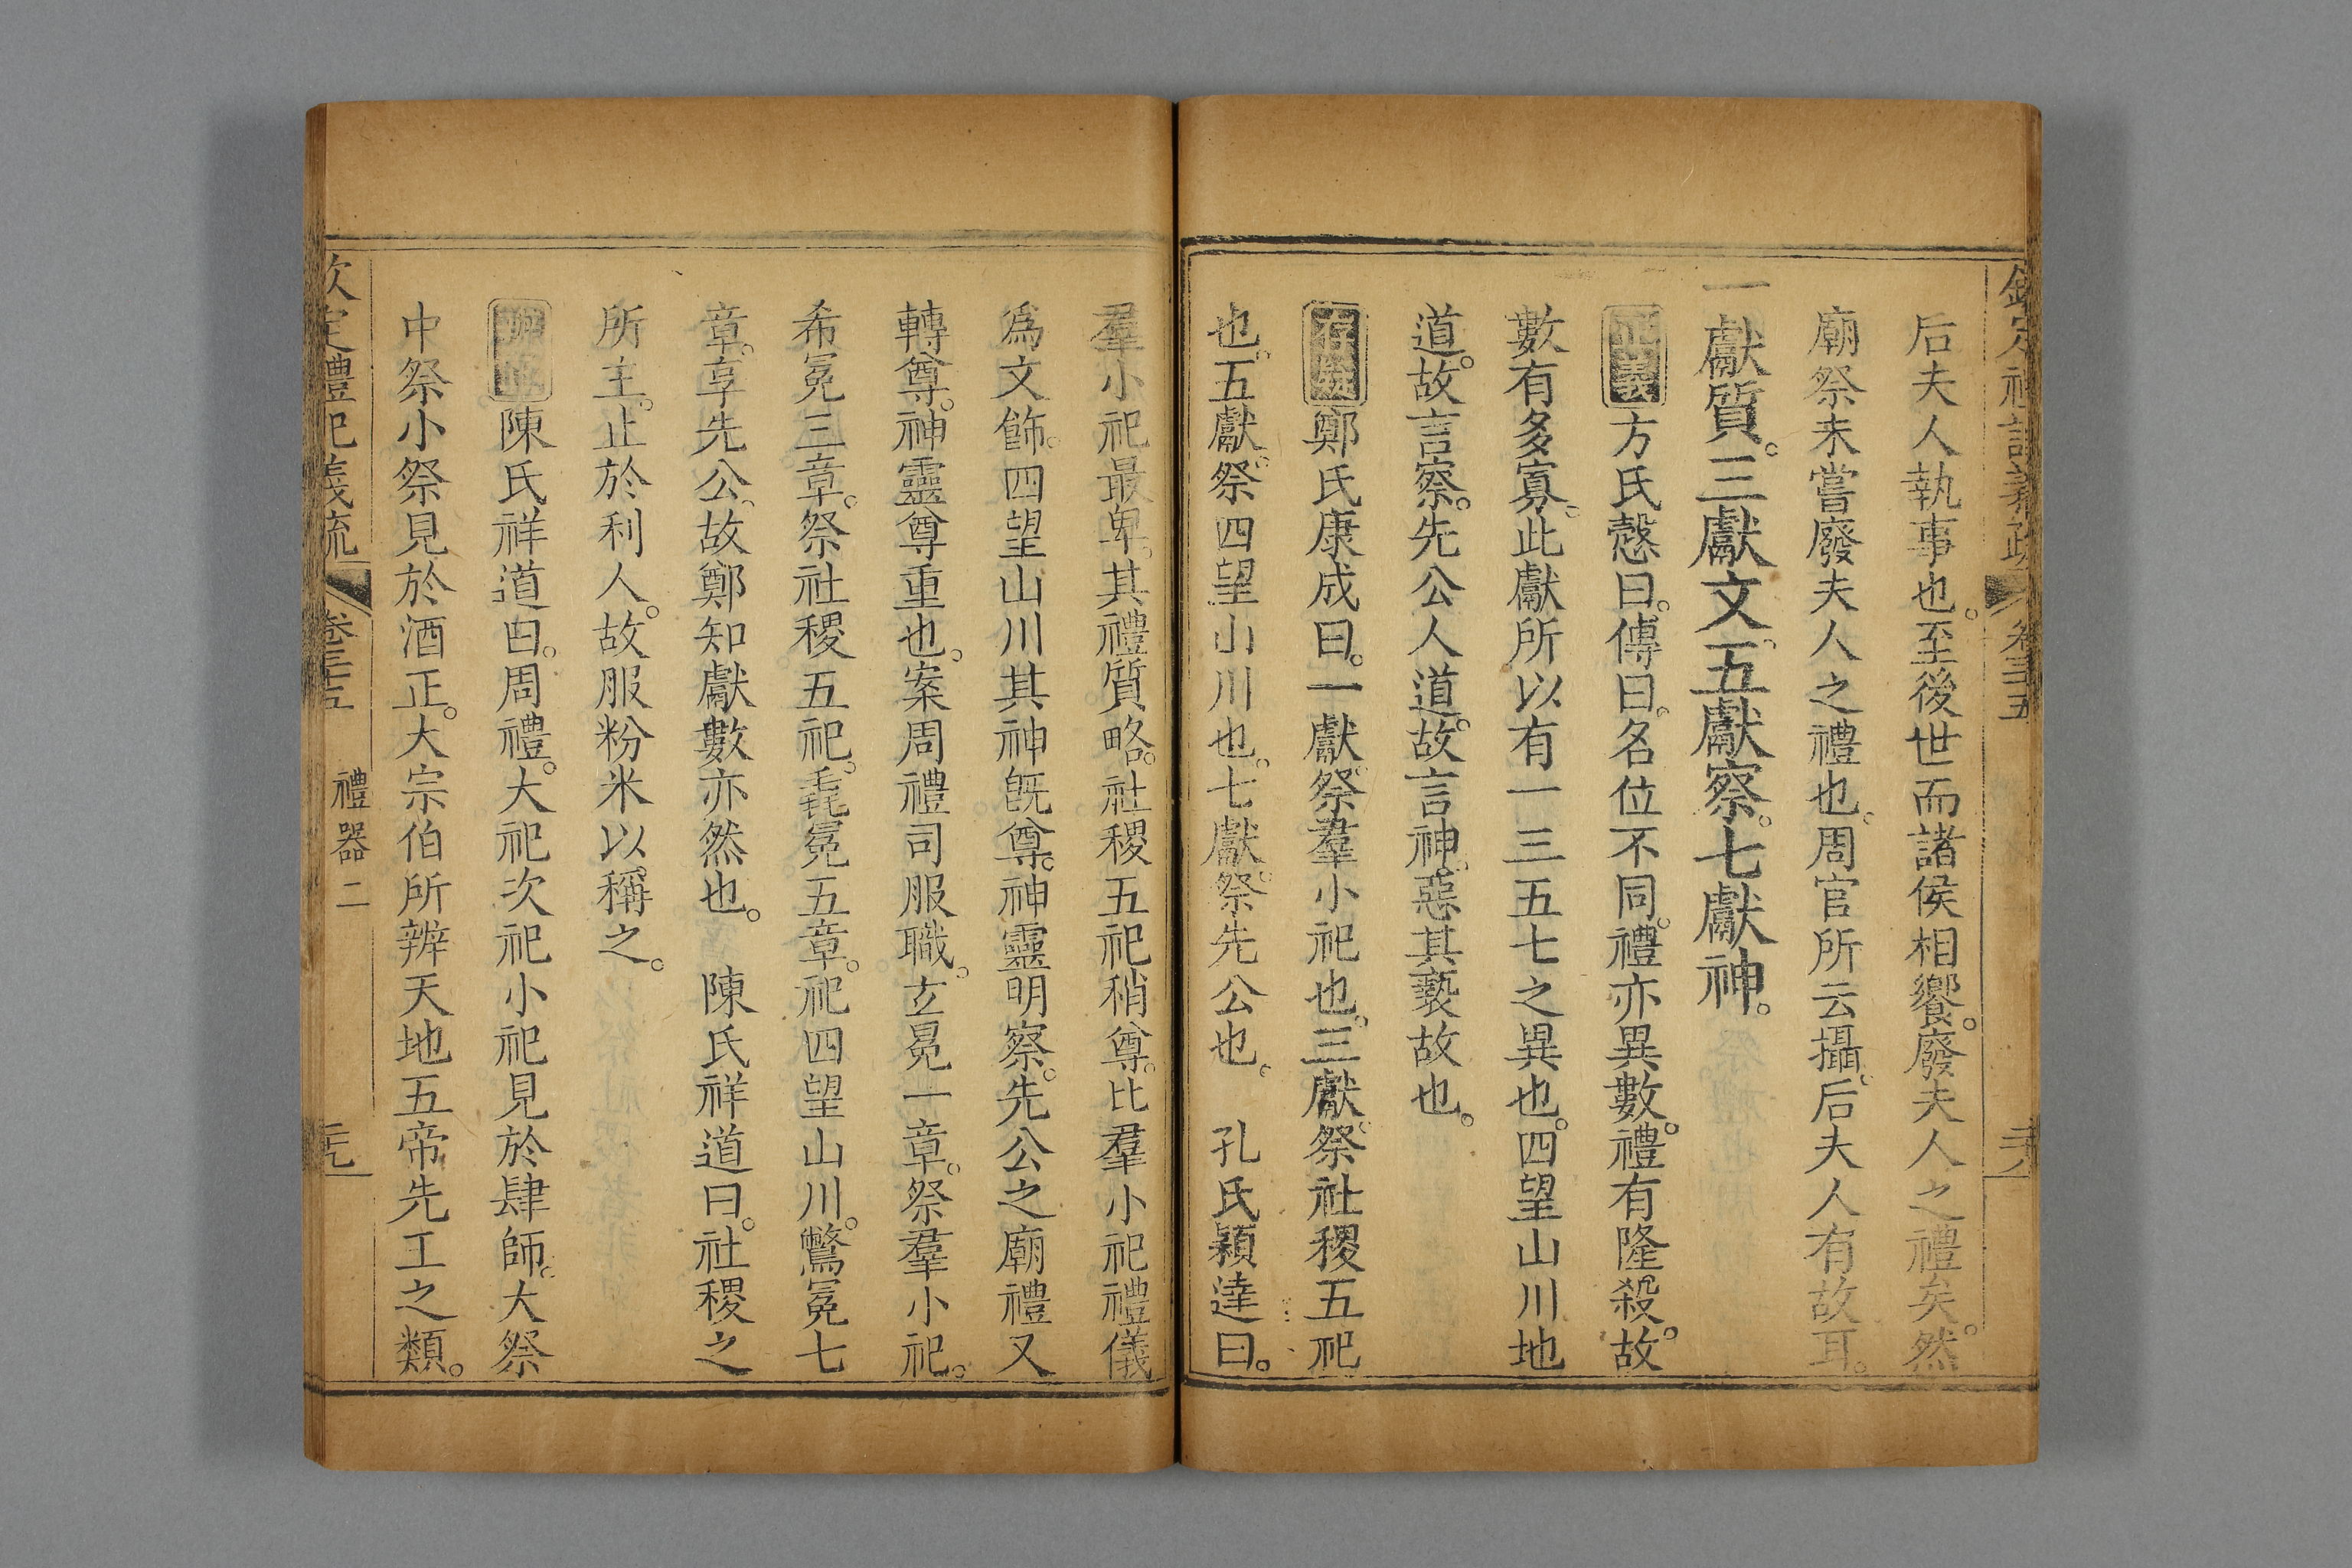 欽定禮記義疏 卷三十五 三八
后夫人執事也。至後世而諸侯相饗。廢夫人之禮矣。然
廟祭未嘗廢夫人之禮也。周官所云攝。后夫人有故耳。
一獻質。三獻文。五獻察。七獻神。
正義方氏慤曰。傳曰。名位不同。禮亦異數。禮有隆殺。故
數有多寡。此獻所以有一三五七之異也。四望山川地
道。故言察。先公人道。故言神。惡其褻故也。
存疑鄭氏康成曰。一獻。祭羣小祀也。三獻。祭社稷五祀
也。五獻。祭四望山川也。七獻。祭先公也。 孔氏穎達曰。
羣小祀最卑。其禮質略。社稷五祀稍尊。比羣小祀禮儀
為文飾。四望山川其神旣尊。神靈明察。先公之廟禮又
轉尊。神靈尊重也。案周禮司服職。玄冕一章。祭羣小祀。
希冕三章。祭社稷五祀。毳冕五章。祀四望山川。鷩冕七
章。享先公。故鄭知獻數亦然也。 陳氏祥道曰。社稷之
所主。止於利人。故服粉米以稱之。
陳氏祥道曰。周禮。大祀次祀小祀見於肆師。大祭
中祭小祭見於酒正。大宗伯所辨天地五帝先王之類。
欽定禮記義疏 卷三十五 禮器二 三九